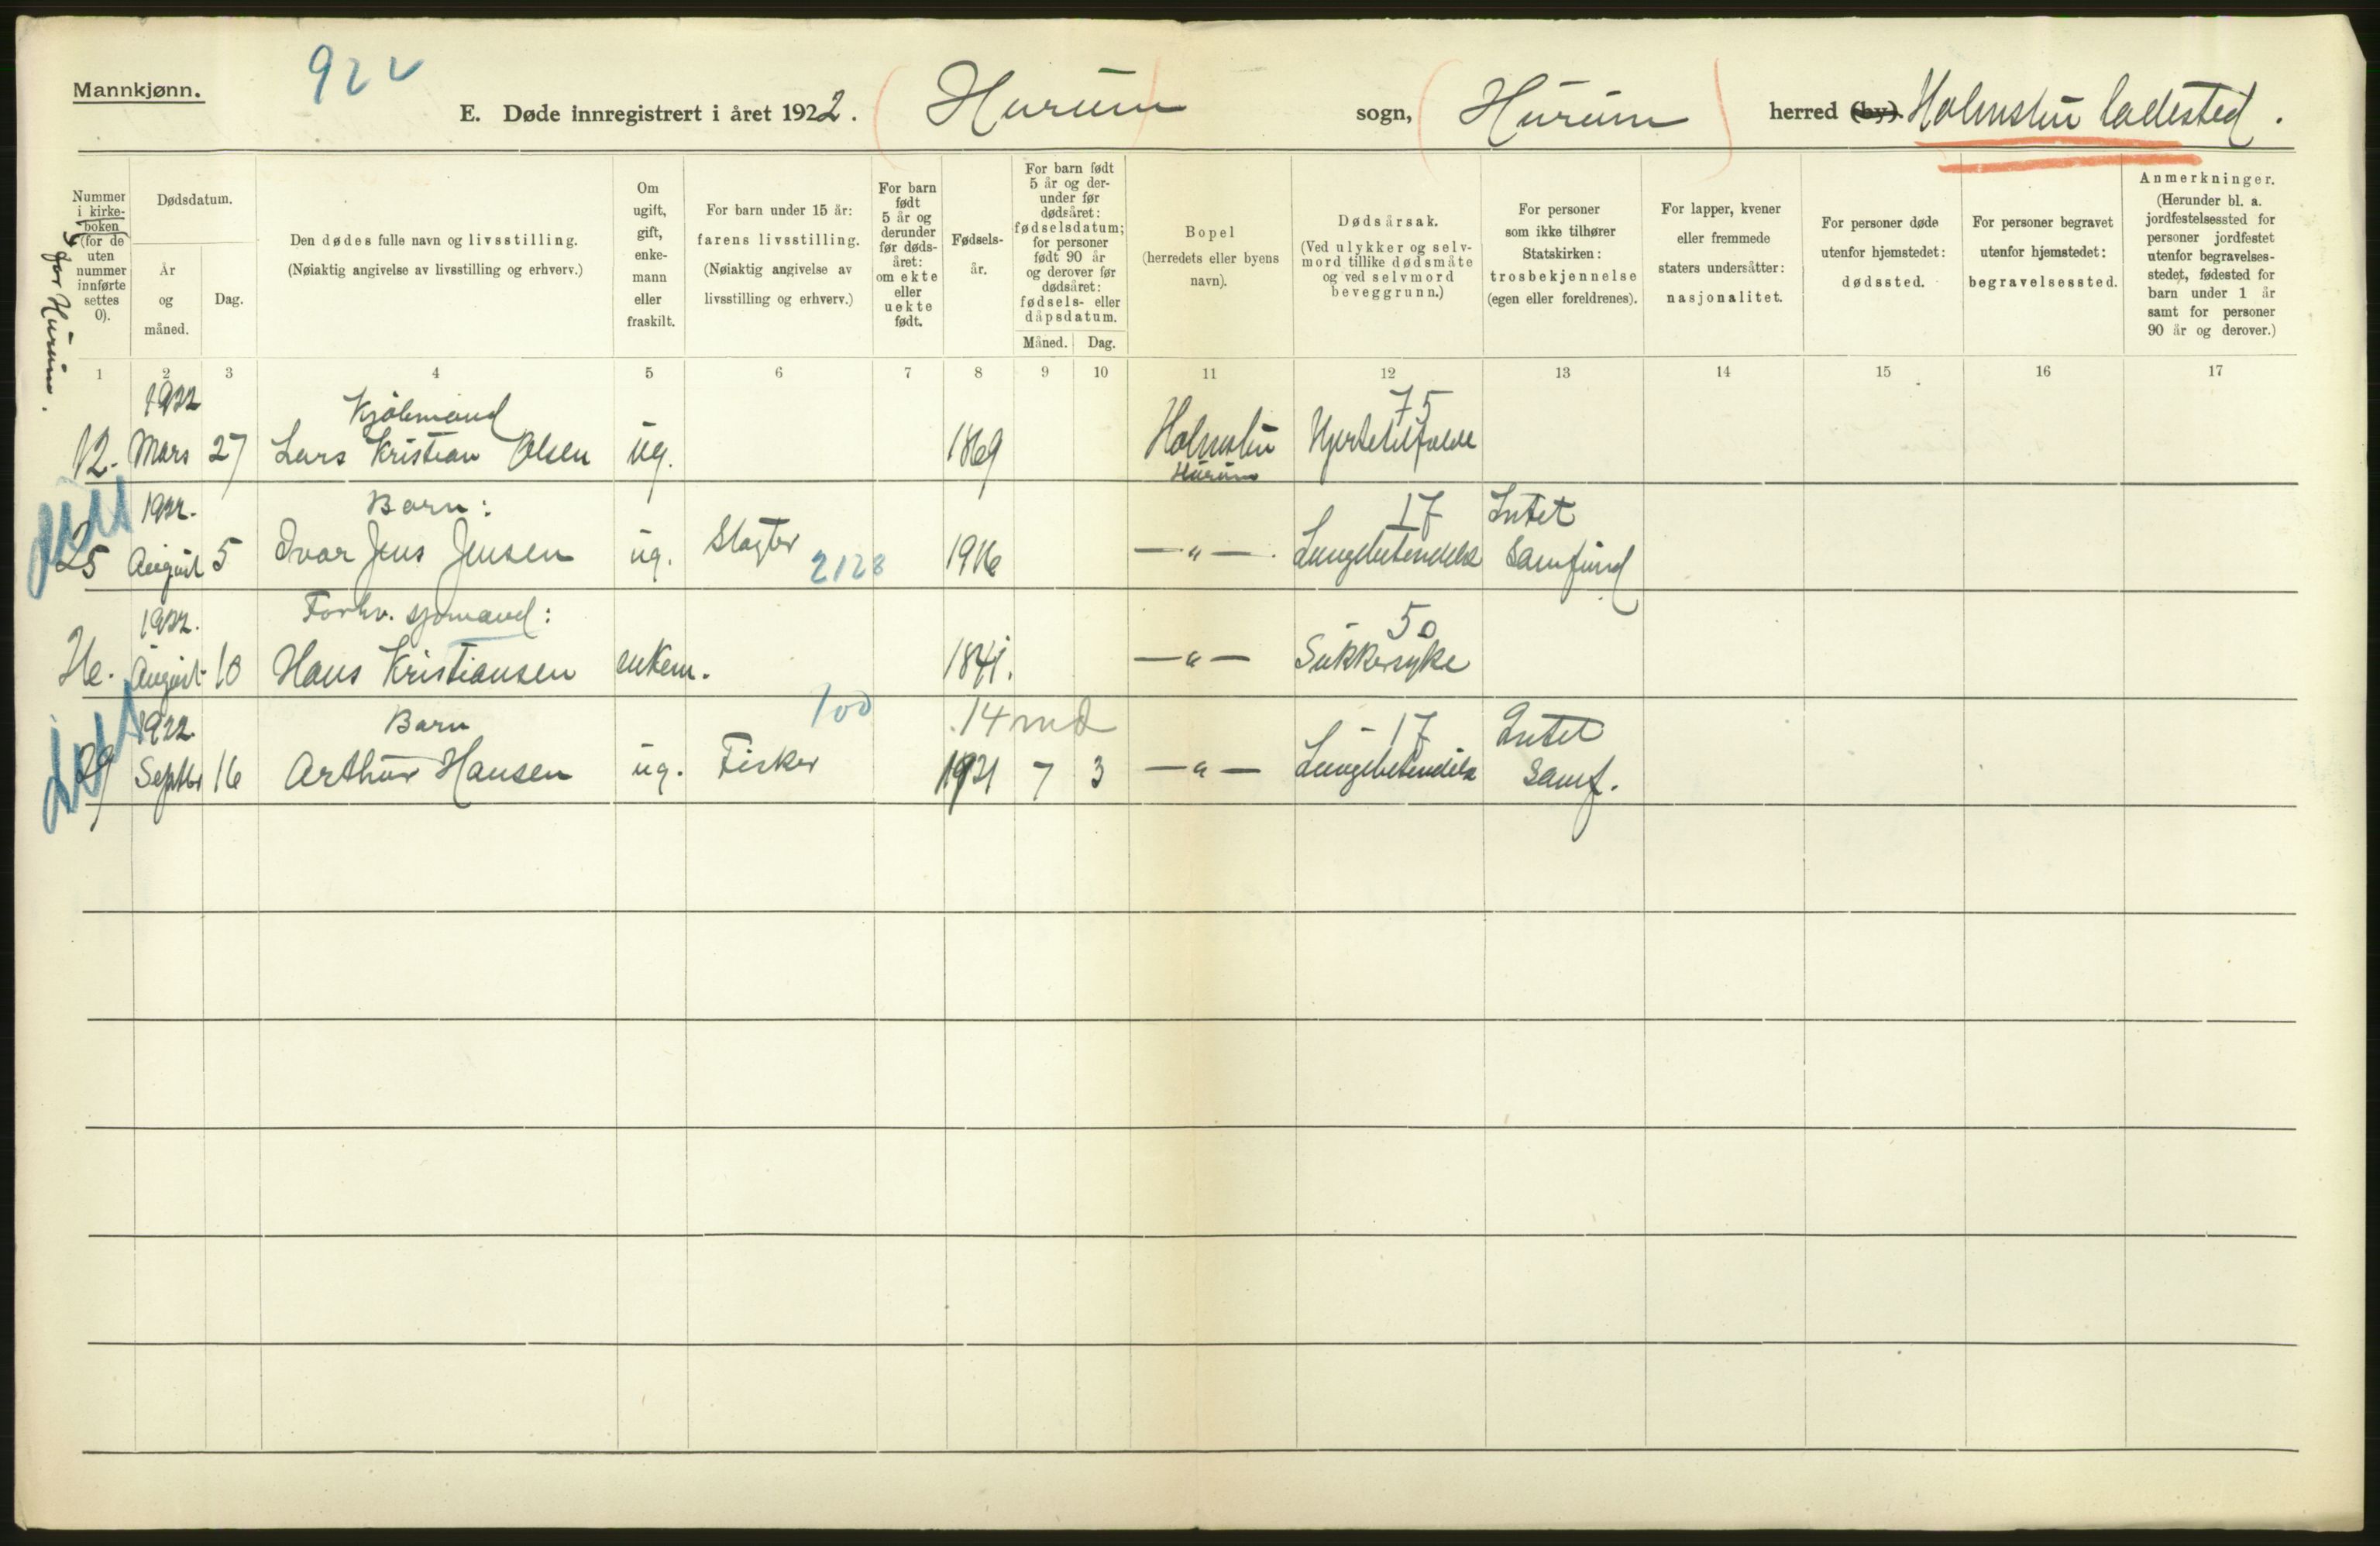 Mannkjønn.
922
E. Døde innregistrert i året 1922. (Hurum) sogn, (Hurum) herred (by). Holmsbu ladested.
for Hurum.
Nummer i kirke- boken (for de uten nummer innførte settes 0).
Dødsdatum.
År og måned.
Dag.
Den dødes fulle navn og livsstilling.
(Nøiaktig angivelse av livsstilling og erhverv.)
Om ugift, gift, enke- mann eller fraskilt.
For barn under 15 år:
farens livsstilling.
(Nøiaktig angivelse av
livsstilling og erhverv.)
For barn født 5 år og derunder før døds- året: om ekte eller uekte født.
Fødsels- år.
For barn født 5 år og der- under før dødsåret: fødselsdatum; for personer født 90 år og derover før dødsåret: fødsels- eller dåpsdatum.
Måned. Dag.
Bopel
(herredets eller byens
navn).
Dødsårsak.
(Ved ulykker og selv-
mord tillike dødsmåte
og ved selvmord
beveggrunn.)
For personer
som ikke tilhører
Statskirken:
trosbekjennelse
(egen eller foreldrenes).
For lapper, kvener
eller fremmede
staters undersåtter:
nasjonalitet.
For personer døde
utenfor hjemstedet:
dødssted.
For personer begravet
utenfor hjemstedet:
begravelsessted.
Anmerkninger.
(Herunder bl. a.
jordfestelsessted for
personer jordfestet
utenfor begravelses-
stedet, fødested for
barn under 1 år
samt for personer
90 år og derover.)
1 2 3 4 5 6 7 8 9 10 11 12 13 14 15 16 17
1922 Kjølemand 75
12. Mars 27 Lars Kristian Olsen ug. 1869 Holmsbu Hjertetilfælde
Hurum
1922. Barn: 17 Intet
25 August 5 Ivar Jens Jensen ug. Slagter 2128 1916 —"—. Lungebetendelse Samfund
1922. Forhv. sjømand: 50
26. August 10 Hans Kristiansen enkem. 1841. —"— Sukkersyke
1922. Barn 100 14 md 17 Intet
29 Septbr 16 Arthur Hansen ug. Fisker 1921 7 3 —"— Lungebetendelse Samf.